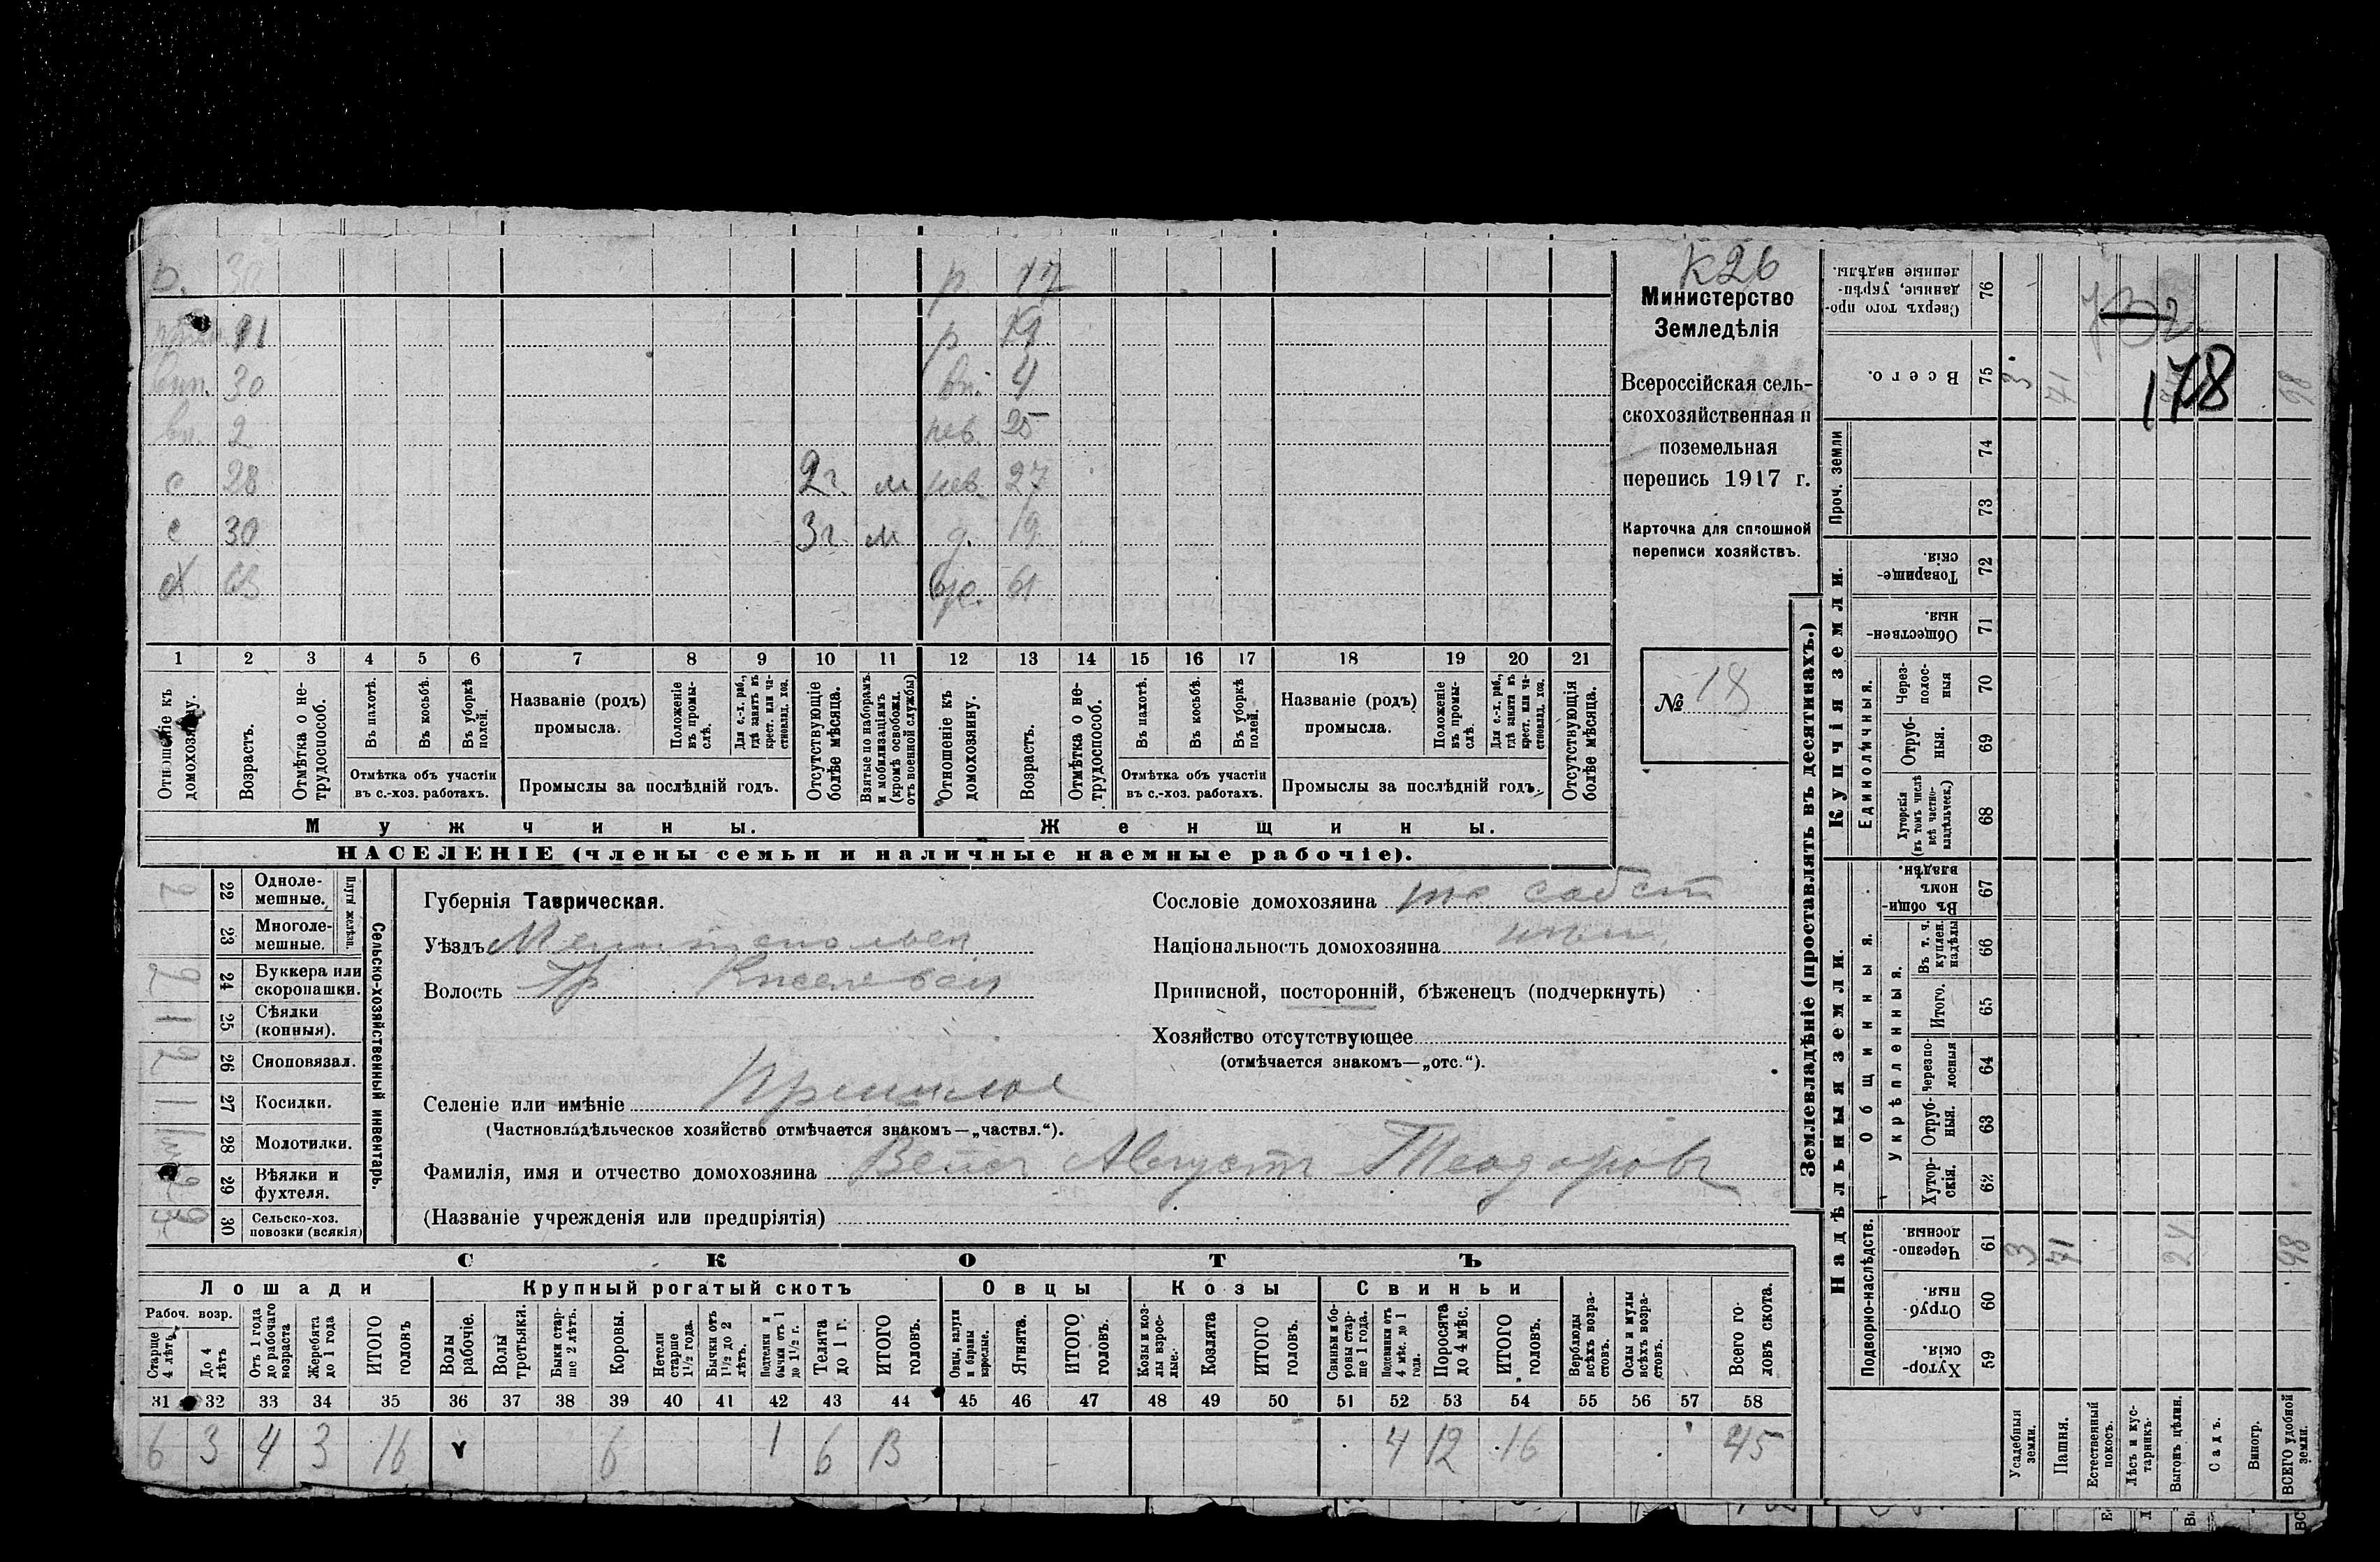 К26
Министерство
Земледѣлія
Всероссійская сель-
скохозяйственная и
поземельная
перепись 1917 г.
Карточка для сплошной
переписи хозяйствъ.
№ 18
р. 17
р
11
вп. 4
30
2
25
с 28 2г. м 27
с 30 3г. м д. 19
х 63 ж. 61
1 2 3 4 5 6 7 8 9 10 11 12 13 14 15 16 17 18 19 20 21
Отношеніе къ домохозяину.
Возрастъ.
Отмѣтка о не-трудоспособ.
Въ пахотѣ.
Въ косьбѣ.
Въ уборкѣ полей.
Отмѣтка объ участіи
въ с.-хоз. работахъ.
Названіе (родъ)
промысла.
Положеніе въ промы-слѣ.
Для с.-х. раб., гдѣ занятъ въ крест. или ча-стновлад. хоз.
Промыслы за послѣдній годъ.
Отсутствующіе болѣе мѣсяца.
Взятые по наборамъ и мобилизаціямъ (кромѣ освобожд. отъ военной службы)
Отношеніе къ домохозяину.
Возрастъ.
Отмѣтка о не-трудоспособ.
Въ пахотѣ.
Въ косьбѣ.
Въ уборкѣ полей.
Отмѣтка объ участіи
въ с.-хоз. работахъ.
Названіе (родъ)
промысла.
Положеніе въ промы-слѣ.
Для с.-х. раб., гдѣ занята въ крест. или ча-стновлад. хоз.
Промыслы за послѣдній годъ.
Отсутствующія болѣе мѣсяца.
Мужчины.
Женщины.
НАСЕЛЕНІЕ (члены семьи и наличные наемные рабочіе).
Сельско-хозяйственный инвентарь.
Плуги желѣзн.
22 Одноле-мешные. 2
23 Многоле-мешные.
24 Буккера или скоропашки. 2
25 Сѣялки (конныя). 1
26 Сноповязал. 2
27 Косилки. 1
28 Молотилки.
29 Вѣялки и фухтеля.
30 Сельско-хоз. повозки (всякія)
Губернія Таврическая.
Уѣздъ Мелитопольск
Волость
Селеніе или имѣніе
(Частновладѣльческое хозяйство отмѣчается знакомъ—„частвл.“).
Фамилія, имя и отчество домохозяина Вейсъ Августъ Теодоровъ
(Названіе учрежденія или предпріятія)
Сословіе домохозяина собст
Національность домохозяина
Приписной, посторонній, бѣженецъ (подчеркнуть)
Хозяйство отсутствующее
(отмѣчается знакомъ—„отс.“).
СКОТЪ
Лошади
Крупный рогатый скотъ
Овцы
Козы
Свиньи
Рабоч. возр.
Старше 4 лѣтъ
До 4 лѣтъ
Отъ 1 года до рабочаго возраста
Жеребята до 1 года
ИТОГО головъ
Волы рабочіе.
Волы третьяки.
Быки стар-ше 2 лѣтъ.
Коровы.
Нетели старше 1½ года.
Бычки отъ 1½ до 2 лѣтъ.
Подтелки и бычки отъ 1 до 1½ г.
Телята до 1 г.
ИТОГО головъ.
Овцы, валухи и бараны взрослые.
Ягнята.
ИТОГО головъ.
Козы и коз-лы взрос-лые.
Козлята
ИТОГО головъ.
Свиньи и бо-ровы стар-ше 1 года.
Подсвинки отъ 4 мѣс. до 1 года.
Поросята до 4 мѣс.
ИТОГО головъ.
Верблюды всѣхъ возра-стовъ.
Ослы и мулы всѣхъ возра-стовъ.
Всего го-ловъ скота.
31 32 33 34 35 36 37 38 39 40 41 42 43 44 45 46 47 48 49 50 51 52 53 54 55 56 57 58
6 3 4 3 16 6 1 6 13 4 12 16 45
Землевладѣніе (проставлять въ десятинахъ.)
Надѣльныя земли.
Купчія земли.
Подворно-наслѣдств.
Общинныя.
Укрѣпленныя.
Единоличныя.
Проч. земли
Сверхъ того про-данные, укрѣп-ленные надѣлы. 76
Всего. 75 3 71 98
178
74
73
Товарище-скія. 72
Обществен-ныя. 71
Через-полос-ныя 70
Отруб-ныя. 69
Хуторскія (въ томъ числѣ всѣ частно-владѣльческ.) 68
Въ общин-номъ владѣн. 67
Въ т. ч. куплен. надѣлы 66
Итого. 65
Черезпо-лосныя 64
Отруб-ныя. 63
Хутор-скія. 62
Черезпо-лосныя. 61 3 71 24 98
Отруб-ныя. 60
Хутор-скія. 59
Усадебныя земли.
Пашня.
Естественный покосъ.
Лѣсъ и кус-тарникъ.
Выгонъ цѣлин.
Садъ.
Виногр.
ВСЕГО удобной земли.